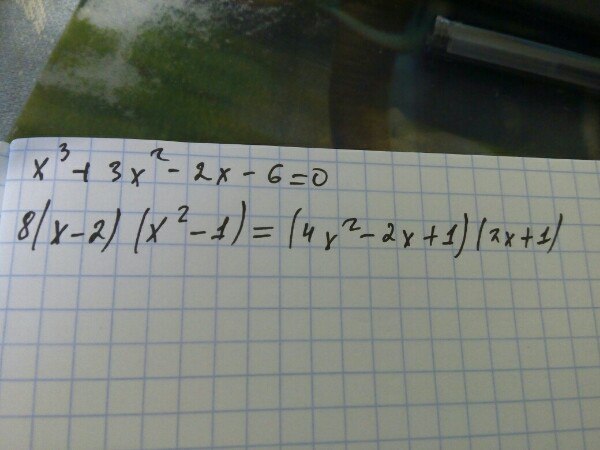 x³ + 3x² - 2x - 6 = 0
8(x-2)(x²-1) = (4x²-2x+1)(2x+1)